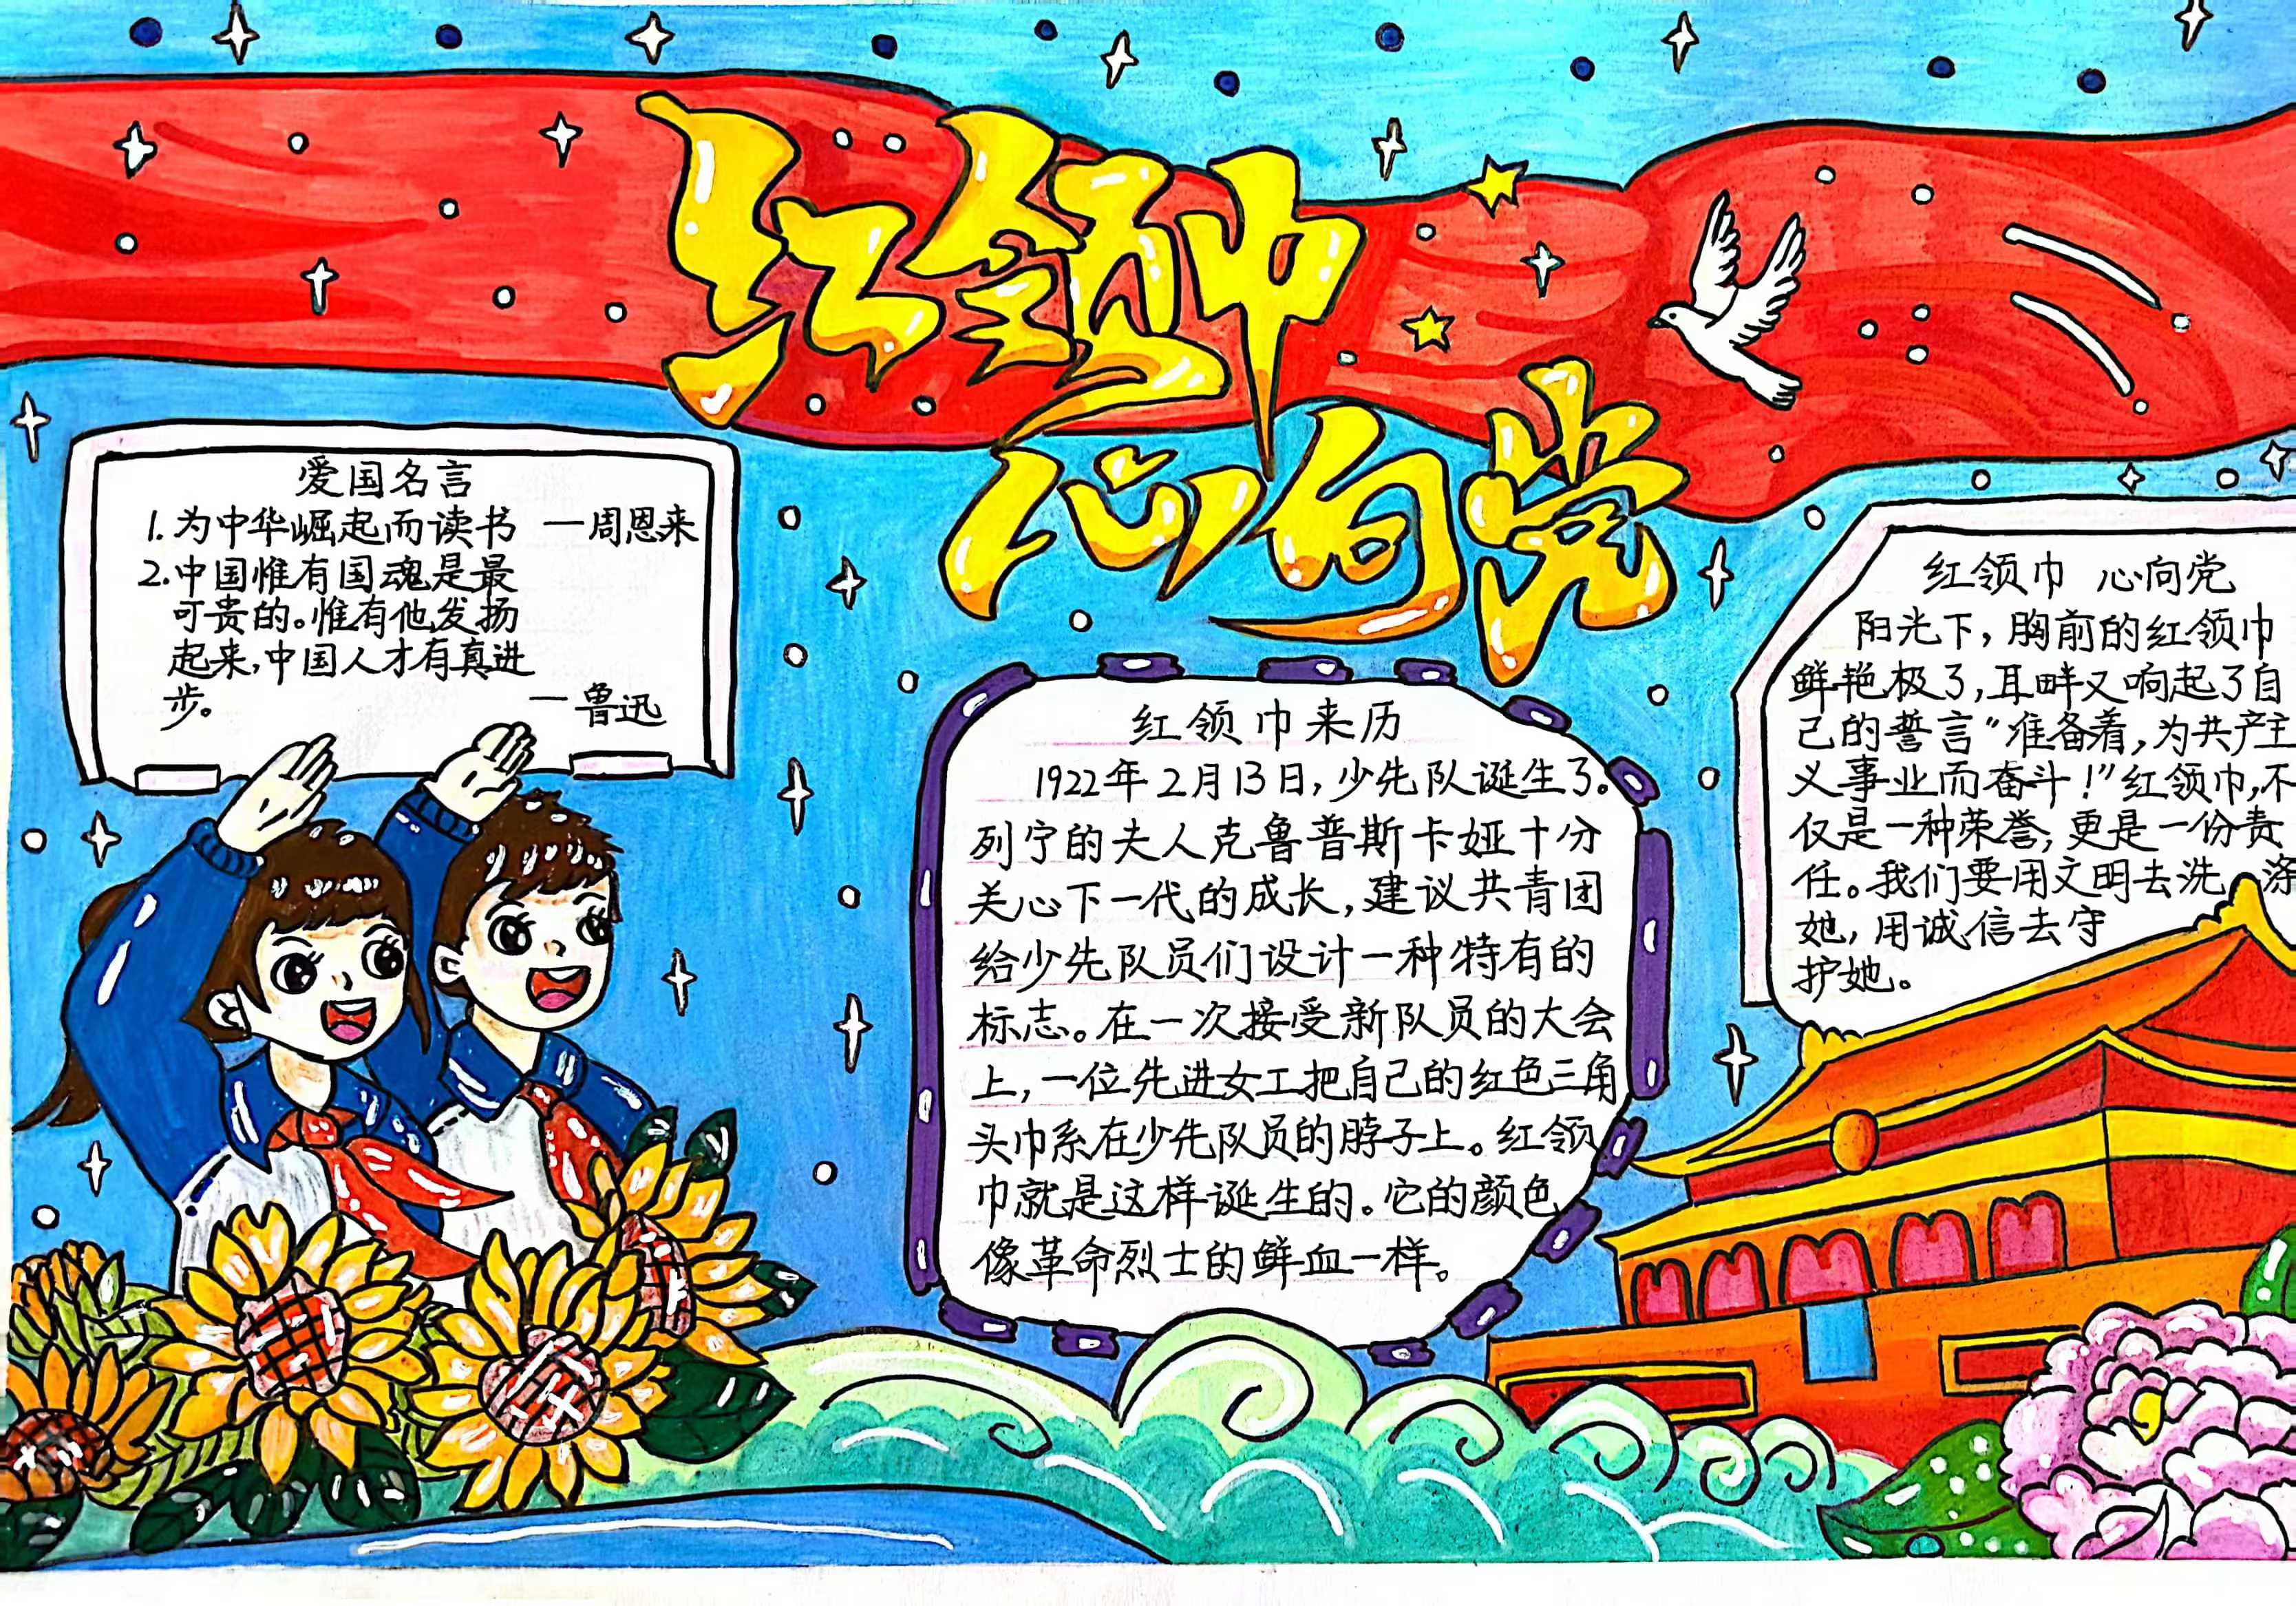 红领巾
心向党
爱国名言
1.为中华崛起而读书 一周恩来
2.中国惟有国魂是最
可贵的。惟有他发扬
起来,中国人才有真进
步。 一鲁迅
红领巾来历
1922年2月13日,少先队诞生了。
列宁的夫人克鲁普斯卡娅十分
关心下一代的成长,建议共青团
给少先队员们设计一种特有的
标志。在一次接受新队员的大会
上,一位先进女工把自己的红色三角
头巾系在少先队员的脖子上。红领
巾就是这样诞生的。它的颜色
像革命烈士的鲜血一样。
红领巾 心向党
阳光下,胸前的红领巾
鲜艳极了,耳畔又响起了自
己的誓言"准备着,为共产主
义事业而奋斗!"红领巾,不
仅是一种荣誉,更是一份责
任。我们要用文明去洗涤
她,用诚信去守
护她。